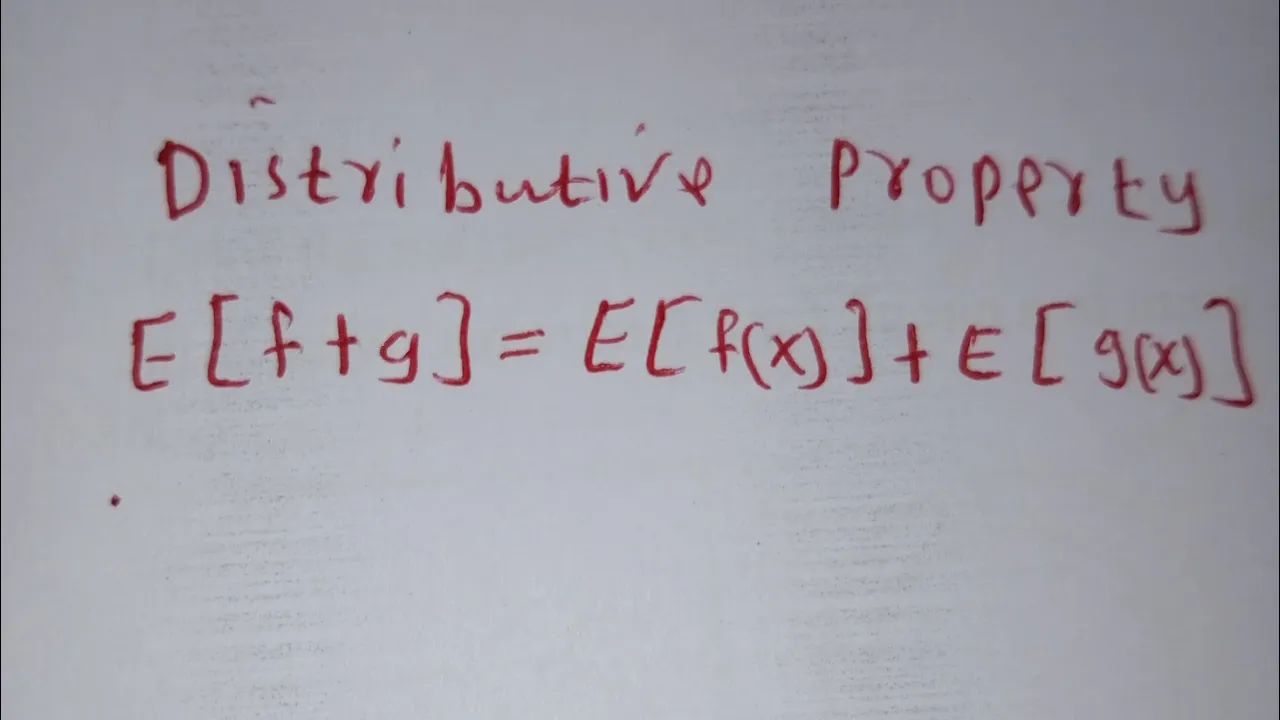 Distributive Property
E[f+g] = E[f(x)] + E[g(x)]